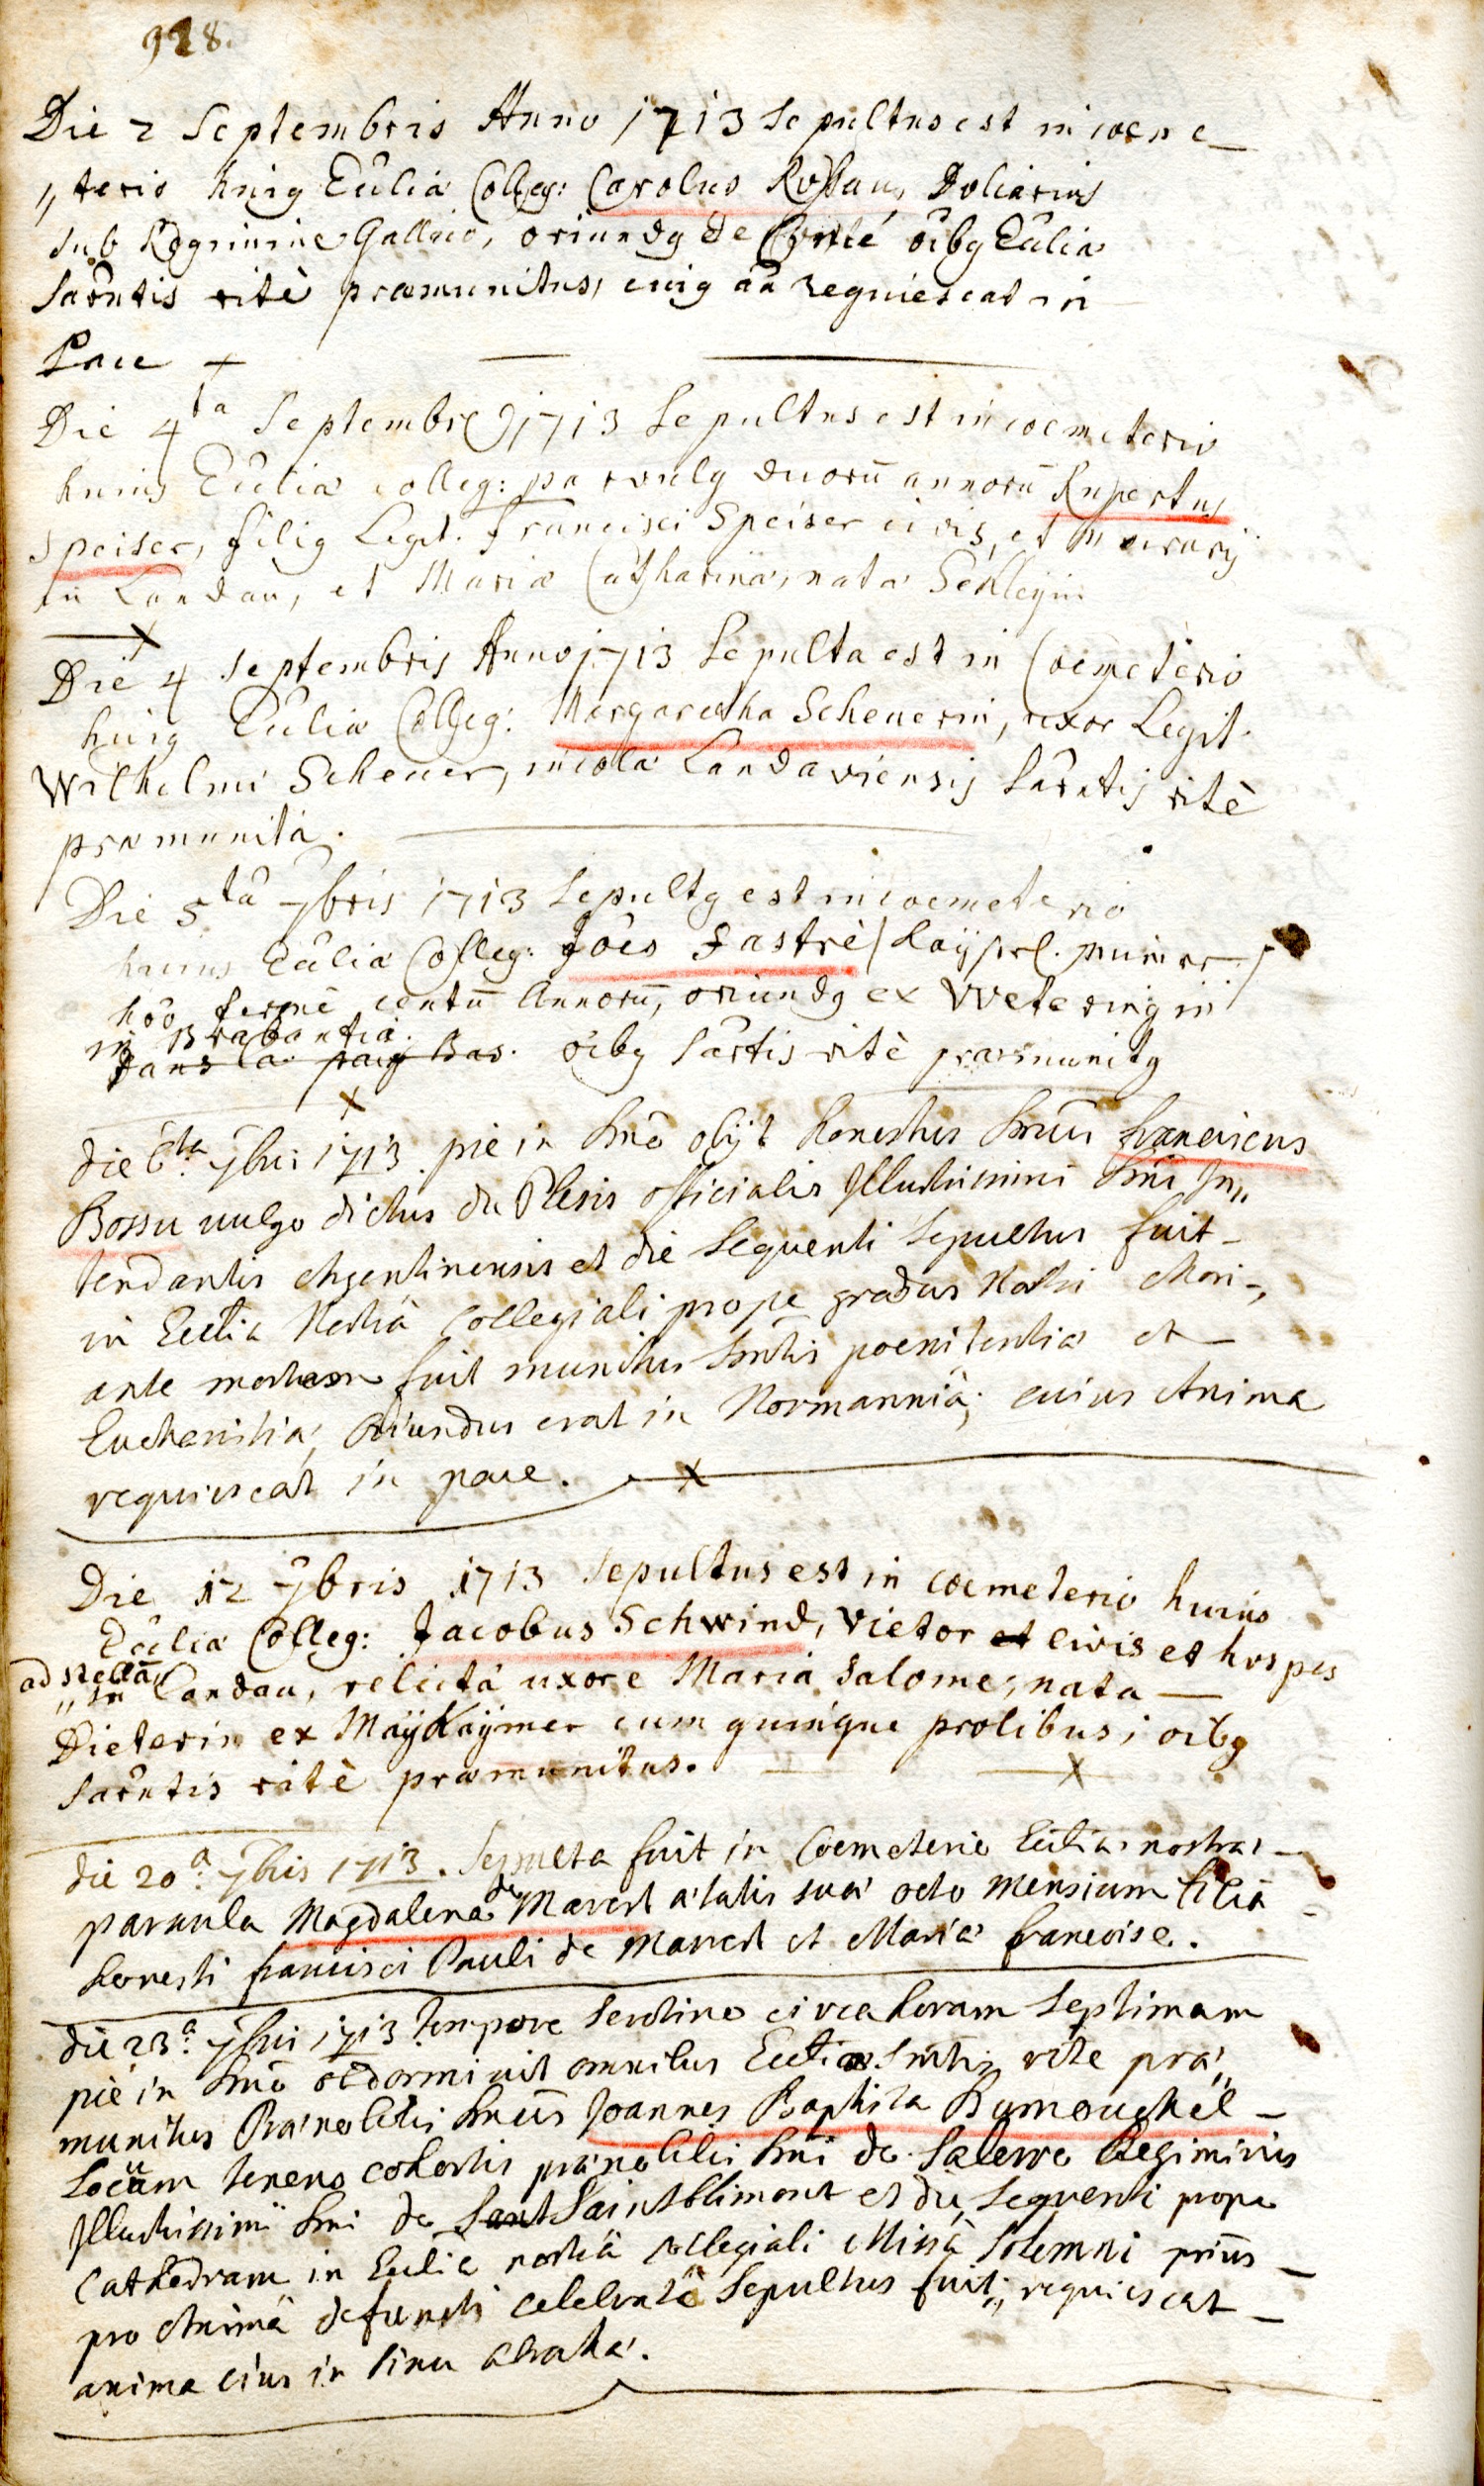 928.
Die 2 Septembris Anno 1713 Sepultus est in coeme_
„terio huig Ecclia Colleg: Carolus Doliarius
sub Regimine Gallico, oriundg de oibg Ecclia
Sacrntis ritè praemunitus, cuig aa requiescat in
Pace +
Die 4ta Septembre 1713 Sepultus est in coemeterio
huius Ecclia colleg: parvulg duorū annorū Rupertus
Speiser, filig Legit. Francisci Speiser civis, et
in Landau, et Maria Catharina, nata
Die 4 Septembris Anno 1713 Sepulta est in Coemeterio
huig Ecclia Colleg: Margaretha Scheuerin, uxor Legit.
Wilhelmi Scheuer, incola Landaviensis Sacrntis ritè
praemunita.
Die 5ta 7bris 1713 Sepultg est in coemeterio
huius Ecclia Colleg: Jôes Fastrè /
hôo fermè centū Annorū, oriundg ex Wetering in
in Brabantia.
dans la pais Bas. oibg Sactis ritè praemunitg
die 6ta 7bri 1713 pie in Dnō obijt honestus Dnus franciscus
Bossu vulgo dictus du Plesis officialis Illustrissimi Dni In„
tendantis Argentinensis et die sequenti sepultus fuit
in Ecclia Nostrâ Collegiali prope gradus Nostri Chori,
ante mortem fuit munitus Smtis poenitentia et
Eucharistia, Oriundus erat in Normanniâ; cuius Anima
requiescat in pace.
Die 12 7bris 1713 Sepultus est in coemeterio huius
Ecclia Colleg: Jacobus Schwind, Vietor et civis et hospes
ad stellā
„in Landau, relictâ uxore Maria Salome, nata
Dieterin ex MaÿKaÿmer cum quinque prolibus, oibg
Sacrntis ritè praemunitus.
die 20a 7bris 1713. Sepulta fuit in Coemeterio Ecclia nostra
parvula Magdalena de Marcst a'tatis sua' octo mensium filia
honesti francisci Pauli de Marcst et Maria francoise.
die 23a 7bri 1713 tempore serotino circa horam septimam
pie in Dnō obdormivit omnibus Ecclia Smtis rite pra'„
munitus Pra'nobilis Dnus Joannes Baptista
Locum tenens cohortis pra'nobilis Dni de Salerre Regiminis
Illustrissimi Dni de Sant Saintblimont et die sequenti prope
Cathedram in Ecclia nostrâ collegiali Missâ Solemni prius
pro Animâ defuncti celebratâ Sepultus fuit; requiescat
anima eius in sinu Abrahā.